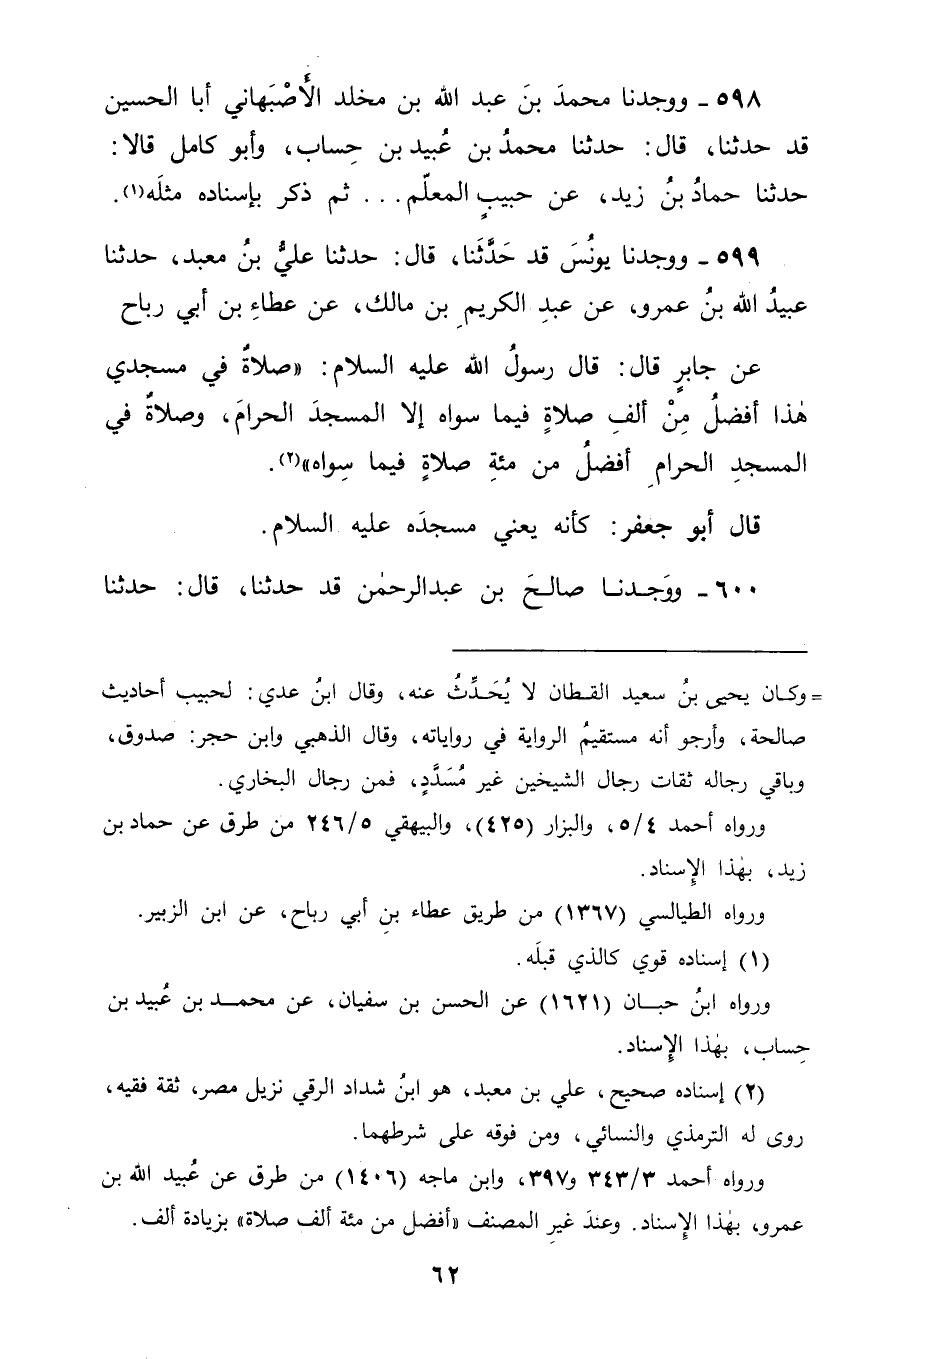 ٥٩٨ ـ ووجدنا محمدَ بنَ عبد الله بن مخلد الأَصْبَهاني أبا الحسين
قد حدثنا، قال: حدثنا محمدُ بن عُبيد بن حِساب، وأبو كامل قالا:
حدثنا حمادُ بنُ زيد، عن حبيبٍ المعلّم... ثم ذكر بإسناده مثلَه(١).
٥٩٩ ـ ووجدنا يونُسَ قد حَدَّثَنا، قال: حدثنا عليُّ بنُ معبد، حدثنا
عبيدُ الله بنُ عمرو، عن عبدِ الكريمِ بن مالك، عن عطاءِ بن أبي رباح
عن جابرٍ قال: قال رسولُ الله عليه السلام: «صلاةٌ في مسجدي
هٰذا أفضلُ مِنْ ألفِ صلاةٍ فيما سواه إلا المسجدَ الحرامَ، وصلاةٌ في
المسجدِ الحرامِ أفضلُ من مئةِ صلاةٍ فيما سِواه»(٢).
قال أبو جعفر: كأنه يعني مسجدَه عليه السلام.
٦٠٠ ـ ووَجدنا صالحَ بن عبدالرحمٰن قد حدثنا، قال: حدثنا
= وكان يحيى بنُ سعيد القطان لا يُحَدِّثُ عنه، وقال ابنُ عدي: لحبيب أحاديث
صالحة، وأرجو أنه مستقيمُ الرواية في رواياته، وقال الذهبي وابن حجر: صدوق،
وباقي رجاله ثقات رجال الشيخين غير مُسَدَّدٍ، فمن رجال البخاري.
ورواه أحمد ٥/٤، والبزار (٤٢٥)، والبيهقي ٢٤٦/٥ من طرق عن حماد بن
زيد، بهٰذا الإِسناد.
ورواه الطيالسي (١٣٦٧) من طريق عطاء بنِ أبي رباح، عن ابن الزبير.
(١) إسناده قوي كالذي قبلَه.
ورواه ابنُ حبان (١٦٢١) عن الحسن بن سفيان، عن محمد بن عُبيد بن
حِساب، بهٰذا الإِسناد.
(٢) إسناده صحيح، علي بن معبد، هو ابنُ شداد الرقي نزيل مصر، ثقة فقيه،
روى له الترمذي والنسائي، ومن فوقه على شرطهما.
ورواه أحمد ٣٤٣/٣ و٣٩٧، وابن ماجه (١٤٠٦) من طرق عن عُبيد الله بن
عمرو، بهٰذا الإِسناد. وعندَ غيرِ المصنف «أفضل من مئة ألف صلاة» بزيادة ألف.
٦٢